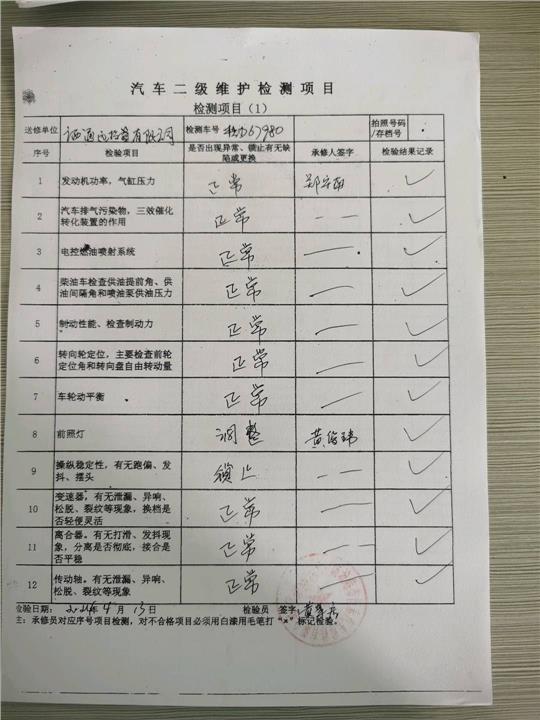 汽车二级维护检测项目
检测项目（1）
送修单位 检测车号 拍照号码/存档号
序号 检验项目 是否出现异常、锁止有无缺陷或更换 承修人签字 检验结果记录
1 发动机功率，气缸压力 正常 ✓
2 汽车排气污染物，三效催化转化装置的作用 正常 — — ✓
3 电控燃油喷射系统 正常 — ✓
4 柴油车检查供油提前角、供油间隔角和喷油泵供油压力 正常 — ✓
5 制动性能、检查制动力 正常 — ✓
6 转向轮定位，主要检查前轮定位角和转向盘自由转动量 正常 — ✓
7 车轮动平衡 正常 — ✓
8 前照灯 调整 ✓
9 操纵稳定性，有无跑偏、发抖、摆头 锁止 — — ✓
10 变速器，有无泄漏、异响、松脱、裂纹等现象，换档是否轻便灵活 正常 — ✓
11 离合器。有无打滑、发抖现象，分离是否彻底，接合是否平稳 正常 — — ✓
12 传动轴。有无泄漏、异响、松脱、裂纹等现象 正常 — ✓
检验日期： 年 4 月 13 日 检验员 签字：
主：承修员对应序号项目检测，对不合格项目必须用白漆用毛笔打“×”标记检验。